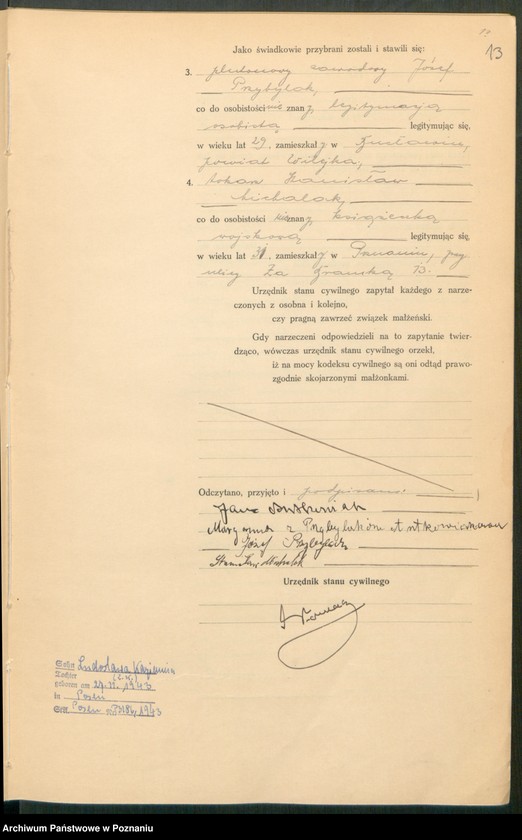 13
Jako świadkowie przybrani zostali i stawili się:
3. plutonowy zawodowy Józef
Przybylak,
co do osobistości nie znany, legitymacją
osobistą legitymując się,
w wieku lat 29, zamieszkały w
powiat
4. tokarz Stanisław
Michalak,
co do osobistości nie znany, książeczką
wojskową legitymując się,
w wieku lat 31, zamieszkały w Poznaniu, przy
ulicy Za Bramką 13.
Urzędnik stanu cywilnego zapytał każdego z narze-
czonych z osobna i kolejno,
czy pragną zawrzeć związek małżeński.
Gdy narzeczeni odpowiedzieli na to zapytanie twier-
dząco, wówczas urzędnik stanu cywilnego orzekł,
iż na mocy kodeksu cywilnego są oni odtąd prawo-
zgodnie skojarzonymi małżonkami.
Odczytano, przyjęto i podpisano:
Jan
z Przybylaków
Józef Przybylak
Stanisław Michalak
Urzędnik stanu cywilnego
Kazimiera
Tochter
geboren am 1943
in Posen
StA Posen 1943
Archiwum Państwowe w Poznaniu